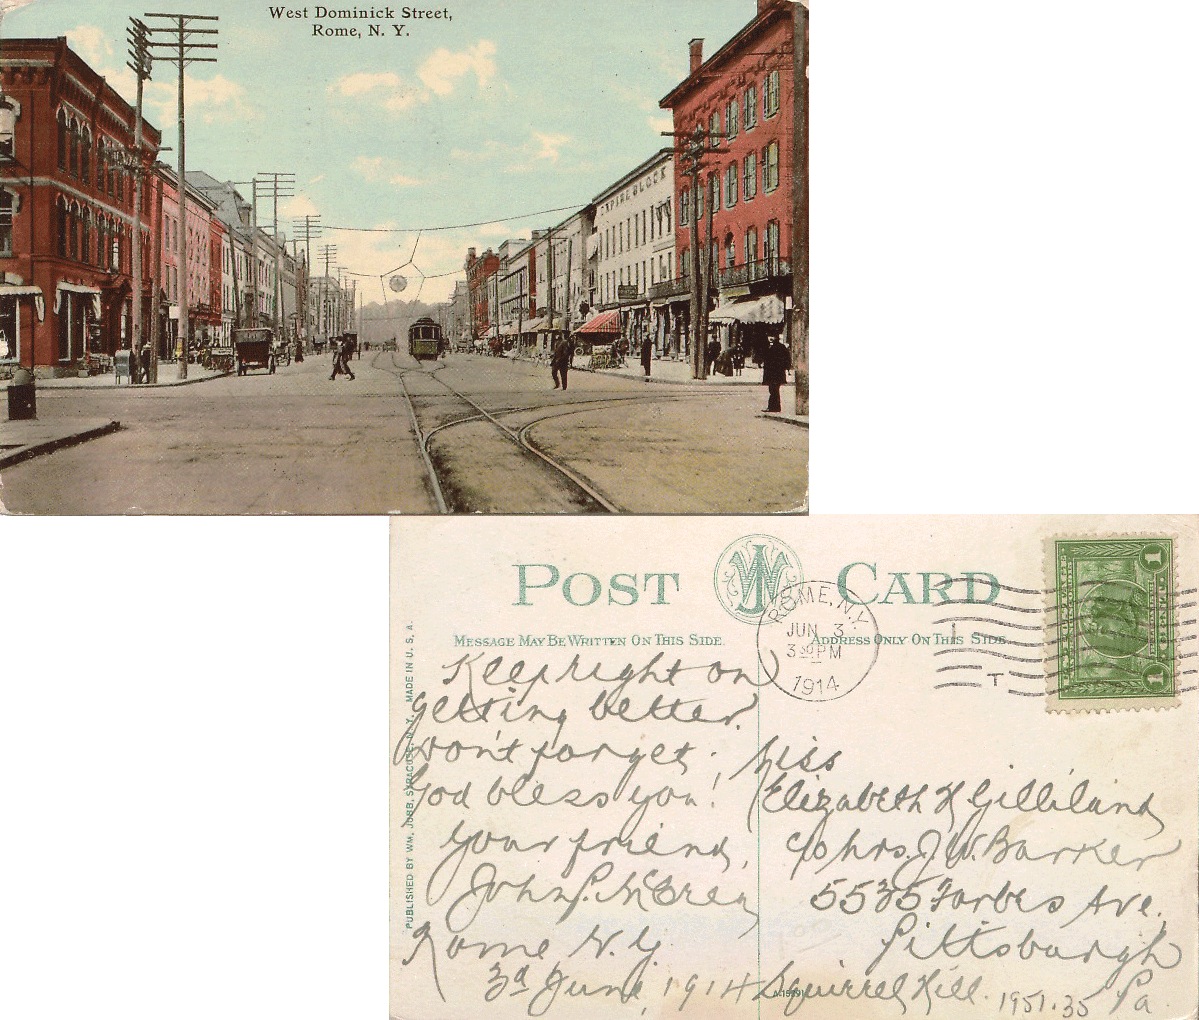 West Dominick Street,
Rome, N. Y.
EMPIRE BLOCK
POST CARD
ROME, N.Y.
JUN 3
3 30 PM
1914
T
1 1
MESSAGE MAY BE WRITTEN ON THIS SIDE.
ADDRESS ONLY ON THIS SIDE.
PUBLISHED BY WM. JUBB, SYRACUSE, N. Y. MADE IN U. S. A.
Keep right on
getting better.
Won't forget.
God bless you!
Your friend,
John P.
Rome N.Y.
3d June, 1914
Miss
Elizabeth H Gilliland
c/o Mrs. J. W. Barker
5535 Forbes Ave.
Pittsburgh
Squirrel Hill. Pa.
1951.35